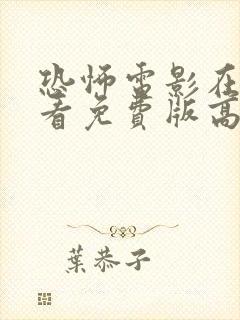 恐怖雷影在
看免費版高
葉恭子